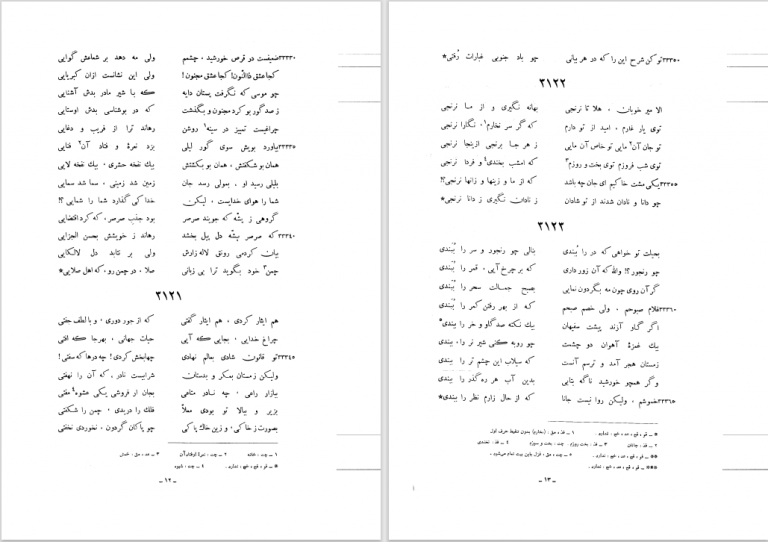 ۳۳۳۳۰ضعیفست دو قرص خورشید ، چشمم ولی مه دهد بر شعاعش گوایی
کجا عشق ذاالنّون؛ کجا عشق مجنون! ولی این نشانست ازان کبریایی
چو موسی که نگرفت پستان دایه که با شیر مادر بدش آشنایی
ز صد گور بو کرد مجنون و بگذشت که در بوشناسی بدش اوستایی
چراغیست تمییز در سینه۱ روشن رهاند ترا از فریب و دغایی
۳۳۳۳۵بیاورد بویش سوی گور لیلی بزد نعرهٔ و فتاد آن۲ فتایی
همان بو شکفتش ، همان بو بکشتش بیک نفخه حشری ، بیک نفخه لایی
بلیلی رسید او ، بمولی رسد جان زمین شد زمینی ، سما شد سمایی
شما را هوای خدایست ، لیکن خدا کی گذارد شما را شمایی؟!
گروهی ز پشّه که جویند صرصر بود جذب صرصر ، که کرد اقتضایی
۳۳۳۴۰که صرصر بپشّه دل پیل بخشد رهاند ز خویشش بحسن الجزایی
بیان کردمی رونق لاله زارش ولی بر نتابد دل لالکایی
چمن۳ خود بگوید ترا بی زبانی صلا ، در چمن رو، که اهل صلایی*
۳۱۲۱
هم ایثار کردی ، هم ایثار گفتی که از جور دوری ، و با لطف جفتی
چراغ خدایی ، بجایی که آیی حیات جهانی ، بهرجا که افتی
۳۳۳۴۵تو قانون شادی بعالم نهادی چها بخش کردی! چه درها که سفتی!
ولیکن زمستان بمکر و بدستان شرابیست نادر، که آن را نهفتی
ببازار راعی ، چه نادر متاعی بجان ار فروشی یکی عشوه۴ مفتی
بزیر و ببالا تو بودی معلّا فلک را دریدی ، چمن را شکفتی
بصورت ز خاکی ، و زین خاک پاکی چو پاکان گردون، نخوردی نخفتی
۱ – چت ، خانه ۲ – چت ، ۳ – عد ، مق ، خمش
* – قو ، قح ، خج ، ندارد . ۴ – چت ،
– ۱۲ –
۳۳۳۵۰تو کن شرح این را که در هر بیانی چو باد جنوبی غبارات رُفتی*
۳۱۲۲
الا میر خوبان ، هلا تا نرنجی بهانه نگیری و از ما نرنجی
توی یار غارم ، امید از تو دارم که گر سر نخارم۱ ، نگارا نرنجی
تو جان آن۲ مایی تو خاص آن مایی ز هر جا برنجی ازینجا نرنجی
توی شب فروزم توی بخت و روزم۳ که امشب بخندی۴ و فردا نرنجی
۳۳۳۵۵یکی مشت خاکیم ای جان چه باشد که از ما و زینها و زانها نرنجی؟!
چو دانا و نادان شدند از تو شادان ز نادان نگیری ز دانا نرنجی*
۳۱۲۳
بحیلت تو خواهی که در را بُبندی بنالی چو رنجور و سر را بُبندی
چو رنجور ؟! والله که آن زور داری که بر چرخ آیی ، قمر را بُبندی
گر آن روی چون مه بگردون نمایی بصبح جمالت سحر را بُبندی
۳۳۳۶۰غلام صبوحم ، ولی خصم صبحم که از بهر رفتن کمر را ببندی
اگر گاو آرند پیشت سفیهان بیک نکته صد گاو و خر را ببندی*
بیک غمزهٔ آهوان دو چشمت چو روبه کنی شیر نر را ، ببندی
زمستان هجر آمد و ترسم آنست که سیلاب این چشم تر را ببندی
و گر همچو خورشید ناگه بتابی بدین آب هر ره گذر را ببندی
۳۳۳۶۵خموشم ، ولیکن روا نیست جانا که از حال زارم نظر را ببندی*
* – قو ، قح ، عد ، خج : ندارد . ۱ – فذ ، مق : (نخارم) بدون نقطهٔ حرف اول
۲ – فذ : جانان ۳ – فذ : بخت روزم . چت : بخت و سیزم ۴ – فذ : نخندی
** – قو ، قح ، عد ، خج : ندارد . – چت ، مق ، غزل باین بیت تمام میشود .
*** – قو ، قح ، عد ، خج : ندارد .
– ۱۳ –